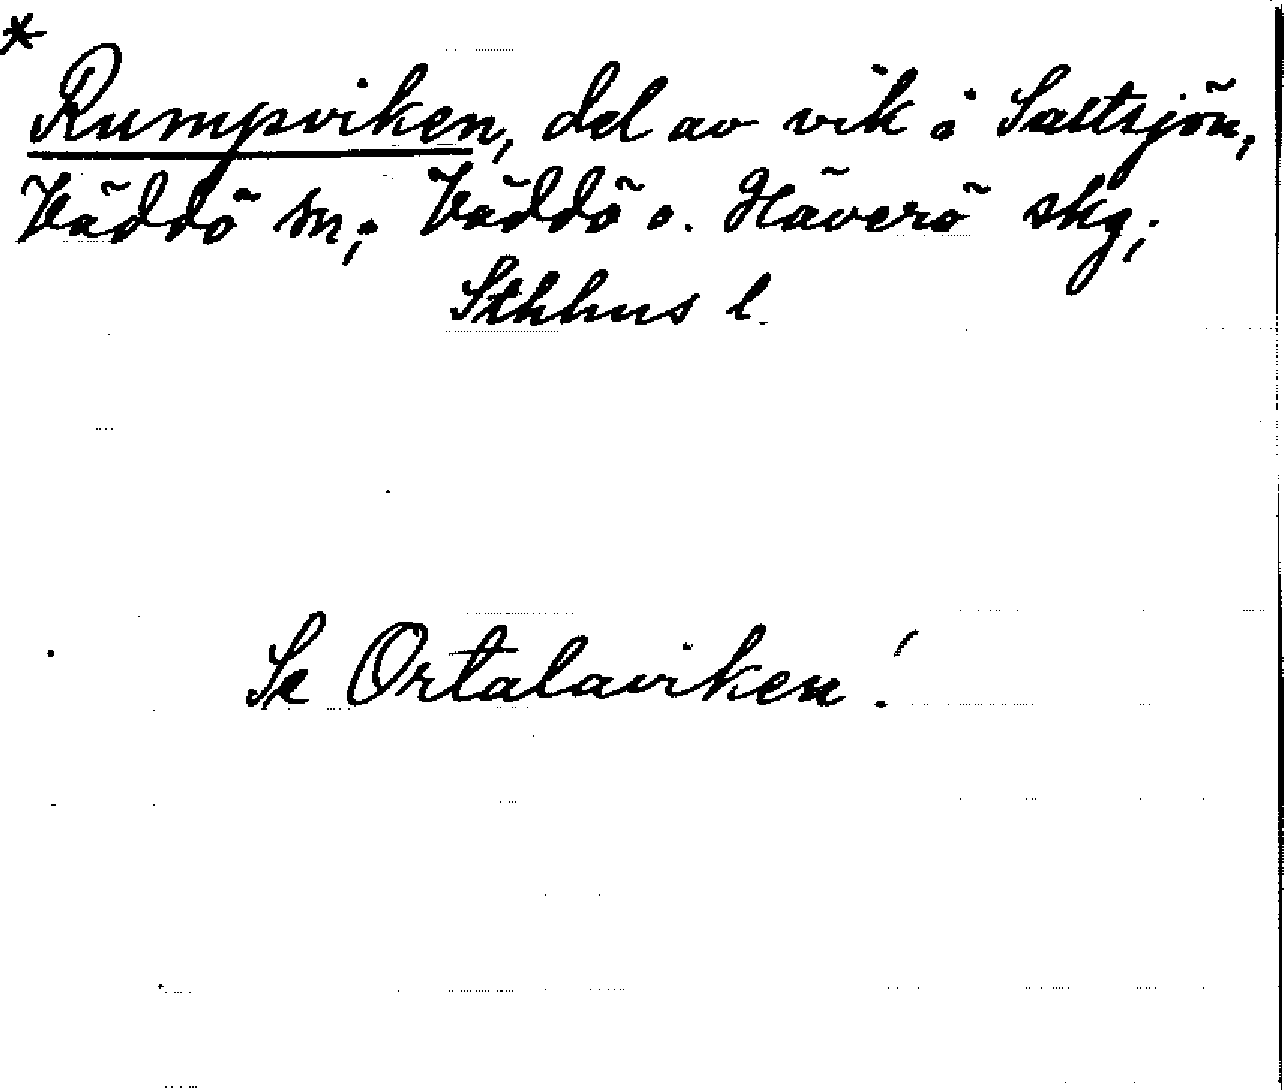 *
Rumpviken, del av vik i Saltsjön,
Väddö sn; Väddö o. Häverö skg;
Sthhus l.
Se Ortalaviken!